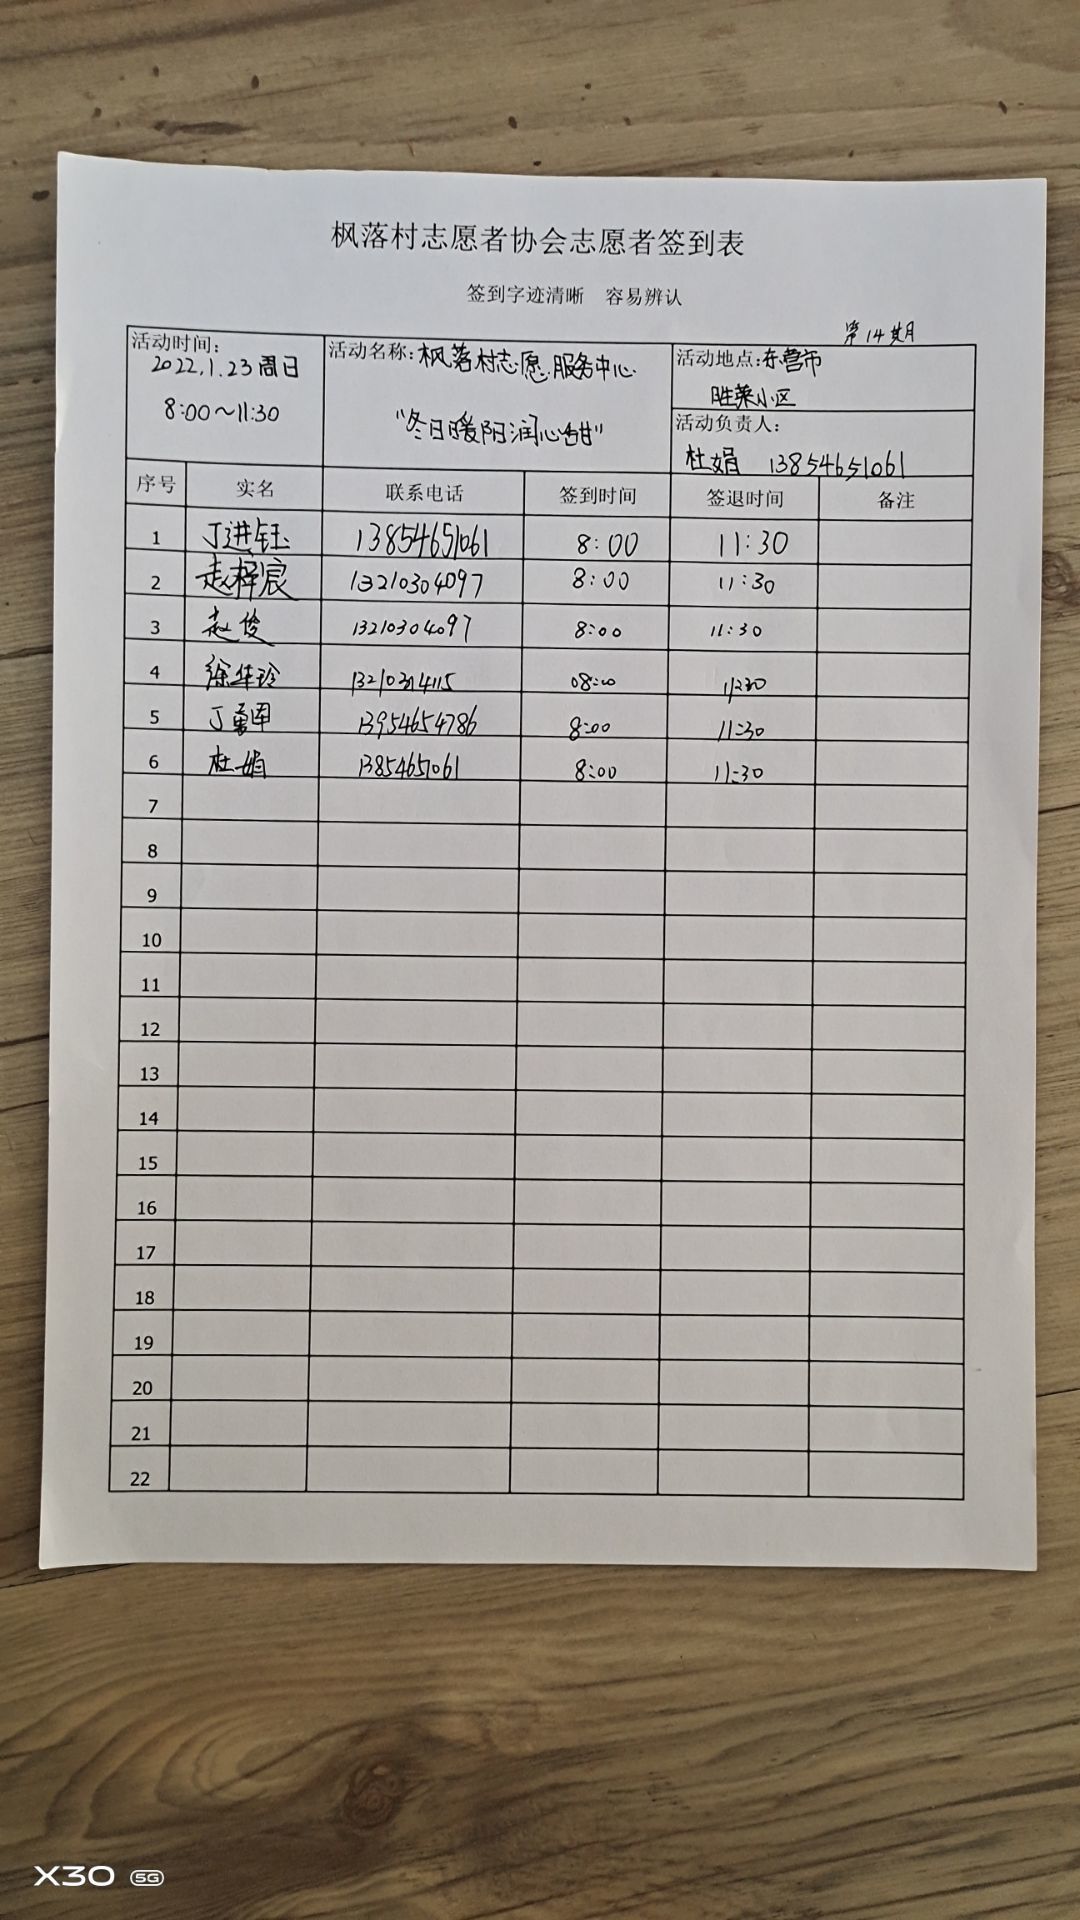 枫落村志愿者协会志愿者签到表
签到字迹清晰 容易辨认
第14期
活动时间: 2022.1.23周日
8:00~11:30
活动名称: 枫落村志愿服务中心
"冬日暖阳润心甜"
活动地点: 东营市
胜莱小区
活动负责人:
杜娟 13854651061
序号 实名 联系电话 签到时间 签退时间 备注
1 丁进钰 13854651061 8:00 11:30
2 赵梓宸 13210304097 8:00 11:30
3 赵俊 13210304097 8:00 11:30
4 徐华玲 08:00 11:30
5 丁勇军 13954654786 8:00 11:30
6 杜娟 13854651061 8:00 11:30
7
8
9
10
11
12
13
14
15
16
17
18
19
20
21
22
X30 5G